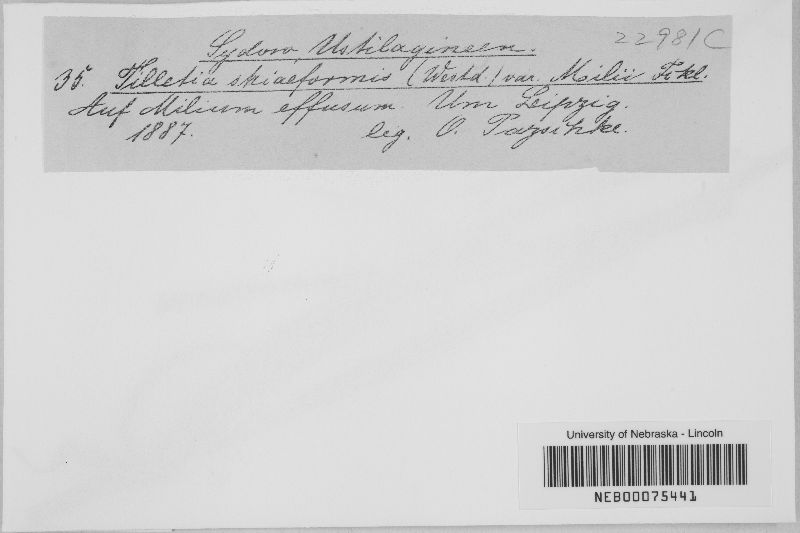 Sydow, Ustilagineen.
22981C
35. Tilletia striaeformis (Westd.) var. Milii Fckl.
Auf Milium effusum. Um Leipzig.
1887. leg. O. Pazschke.
University of Nebraska - Lincoln
NEB00075441